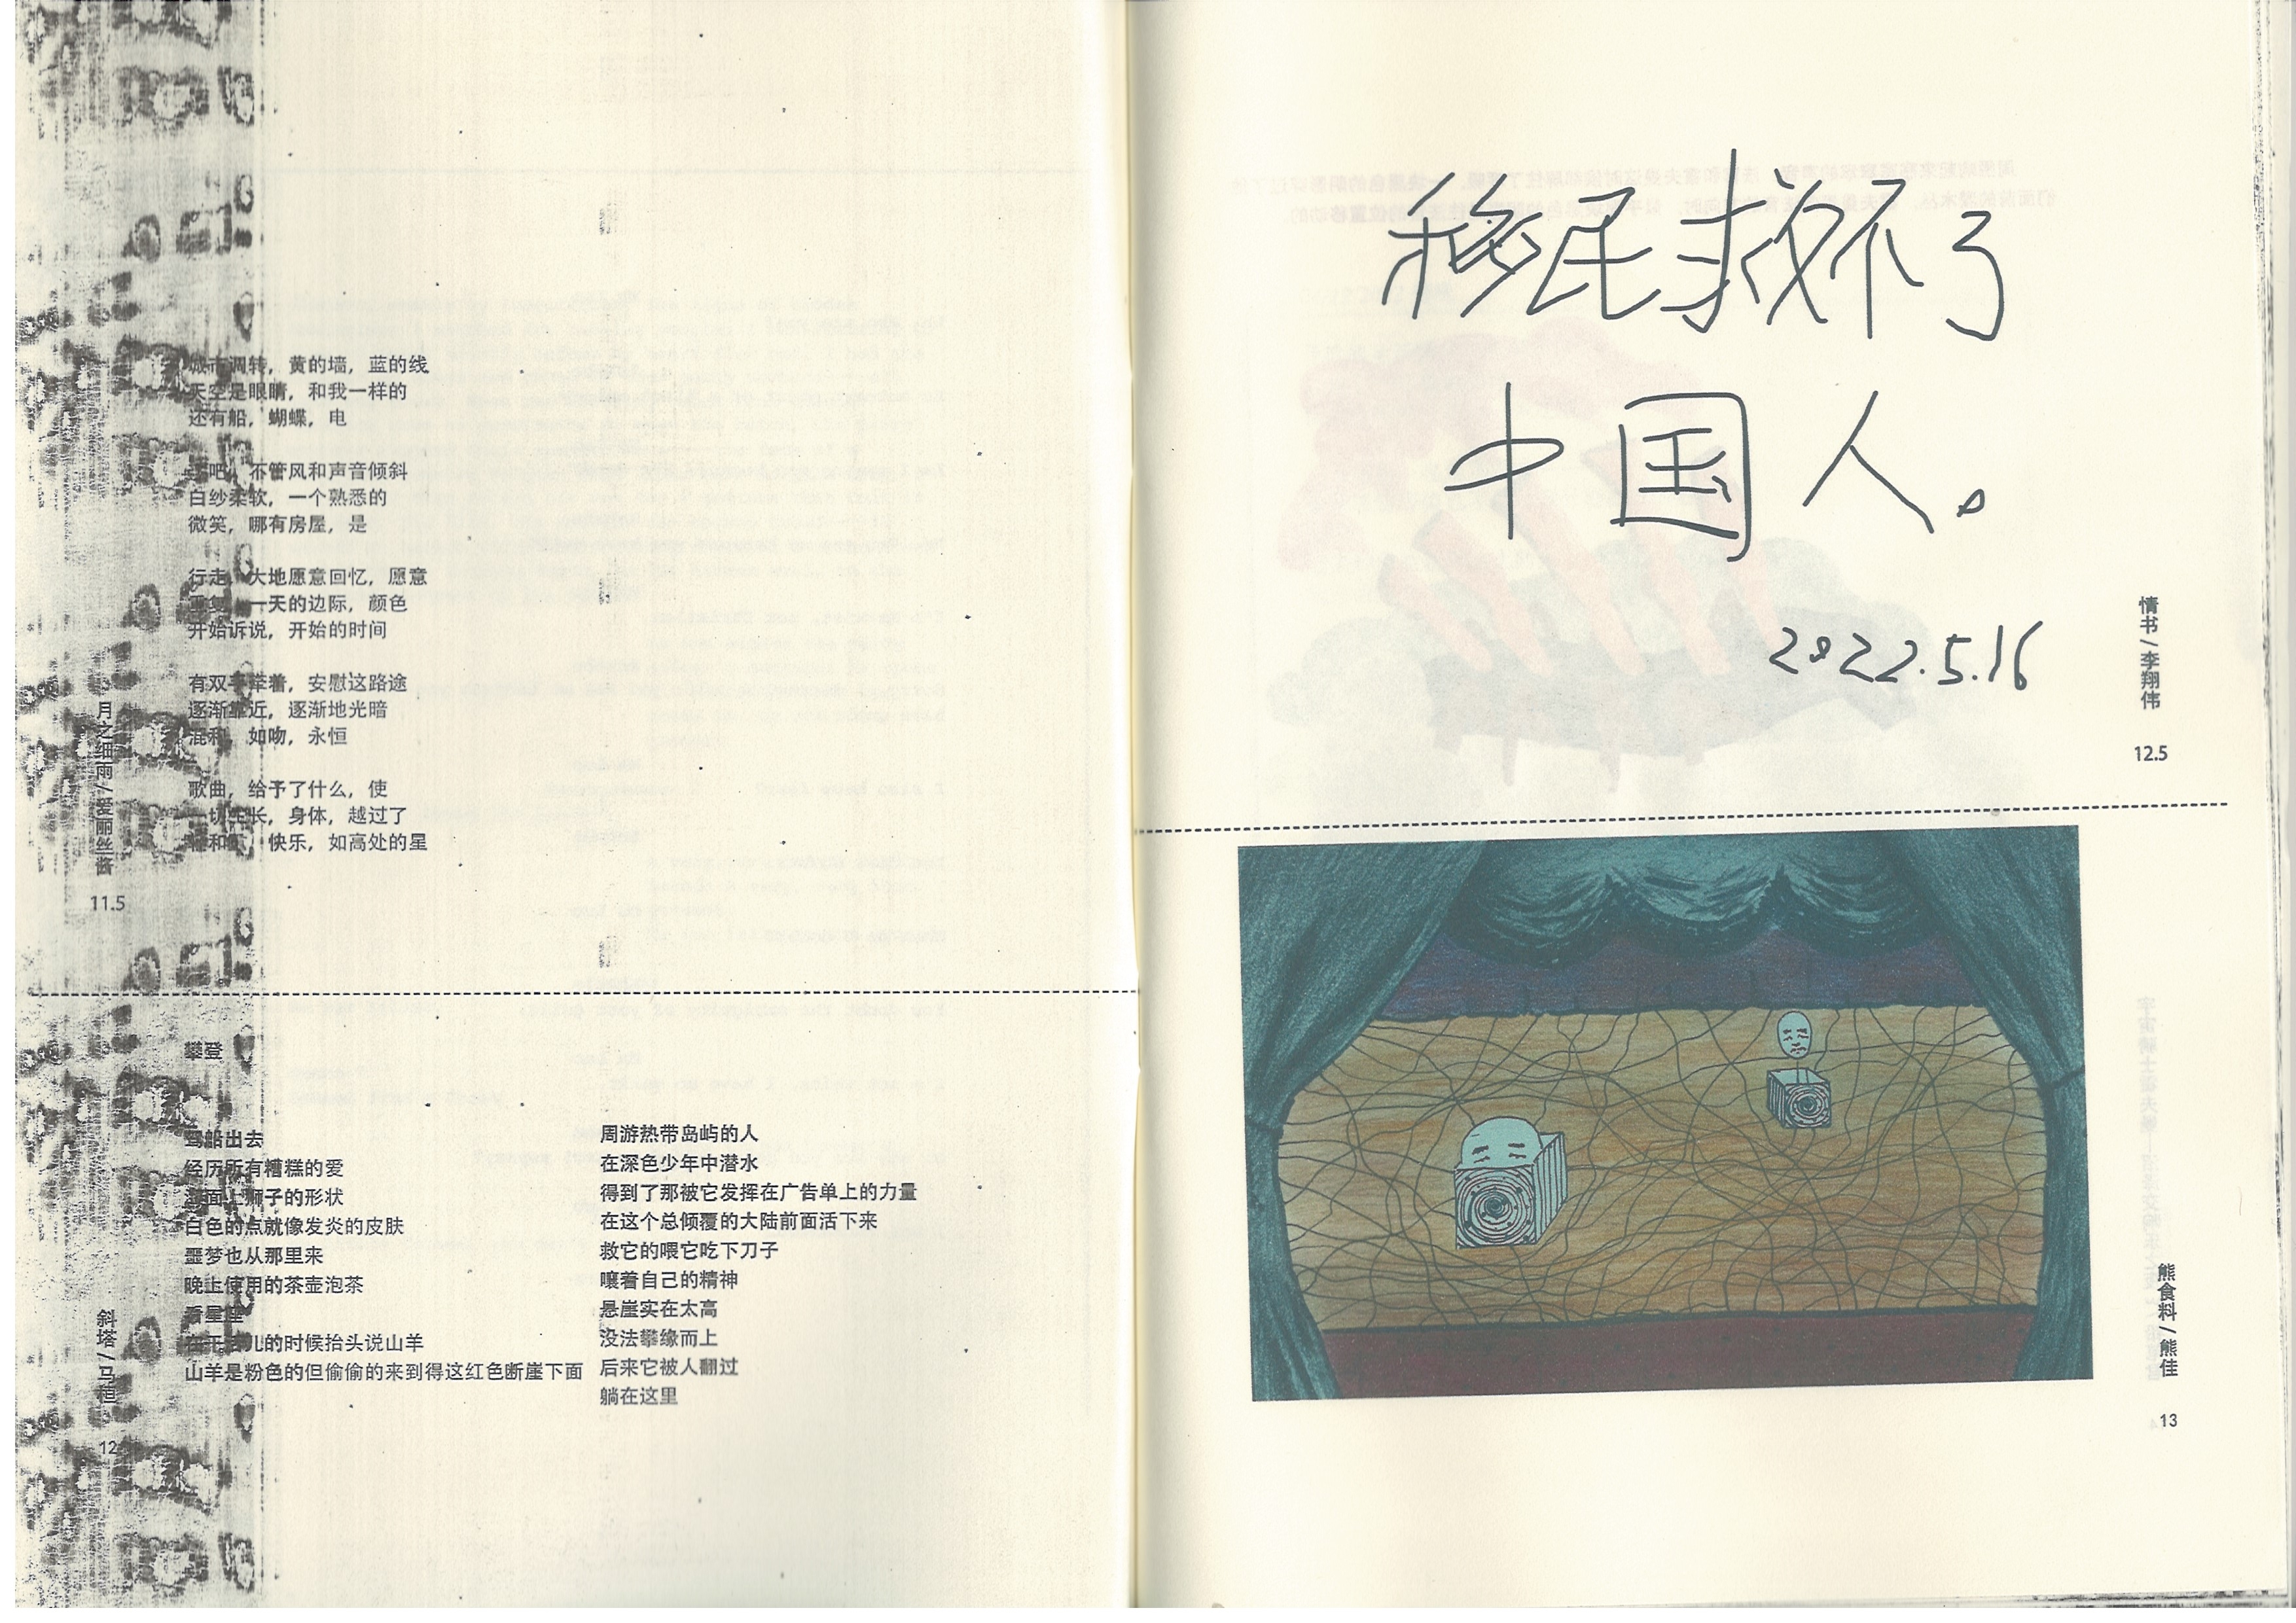 城市调转，黄的墙，蓝的线
天空是眼睛，和我一样的
还有船，蝴蝶，电
吧，不管风和声音倾斜
白纱柔软，一个熟悉的
微笑，哪有房屋，是
行走，大地愿意回忆，愿意
重复，一天的边际，颜色
开始诉说，开始的时间
有双手牵着，安慰这路途
逐渐靠近，逐渐地光暗
混和，如吻，永恒
歌曲，给予了什么，使
一切生长，身体，越过了
和，快乐，如高处的星
月之细雨/爱丽丝酱
11.5
攀登
驾船出去
经历所有糟糕的爱
海面上狮子的形状
白色的点就像发炎的皮肤
噩梦也从那里来
晚上使用的茶壶泡茶
看星座
在干活儿的时候抬头说山羊
山羊是粉色的但偷偷的来到得这红色断崖下面
周游热带岛屿的人
在深色少年中潜水
得到了那被它发挥在广告单上的力量
在这个总倾覆的大陆前面活下来
救它的喂它吃下刀子
嚷着自己的精神
悬崖实在太高
没法攀缘而上
后来它被人翻过
躺在这里
斜塔/马桓
12
移民救不了
中国人。
2022.5.16
情书/李翔伟
12.5
熊食料/熊佳
13